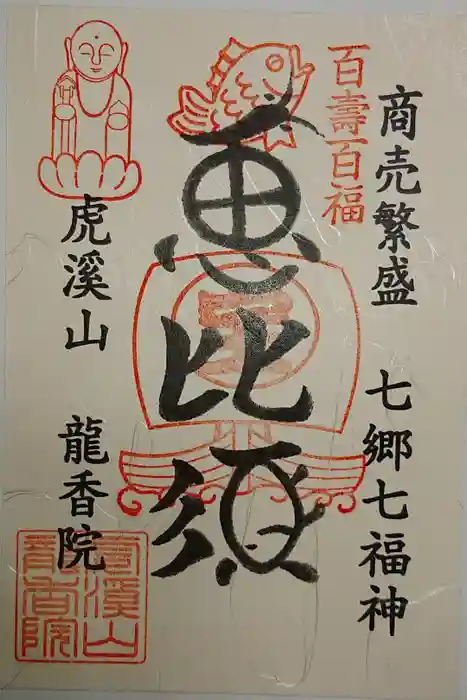 百壽百福
商売繁盛 七郷七福神
恵比須
虎溪山 龍香院
虎溪山
龍香院